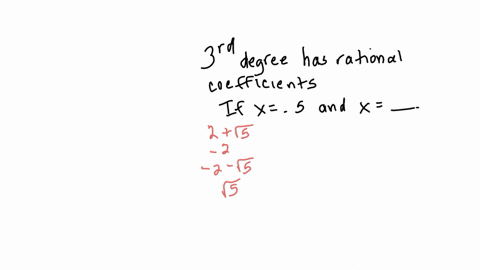 3rd degree has rational
coefficients
If x = .5 and x = __.
2 + √5
- 2
- 2 - √5
√5